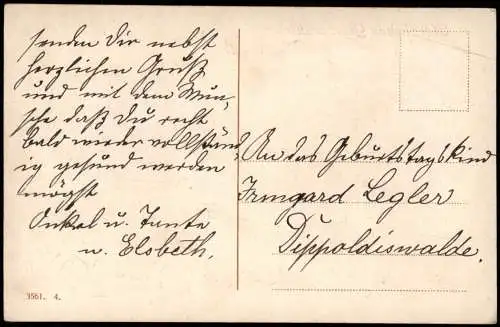 senden Dir nebst
herzlichen Gruß
und mit dem Wun-
sche daß Du recht
bald wieder vollständ-
ig gesund werden
mögst
Onkel u. Tante
u. Elsbeth.
An das Geburtstagskind
Irmgard Legler
Dippoldiswalde.
3561. 4.